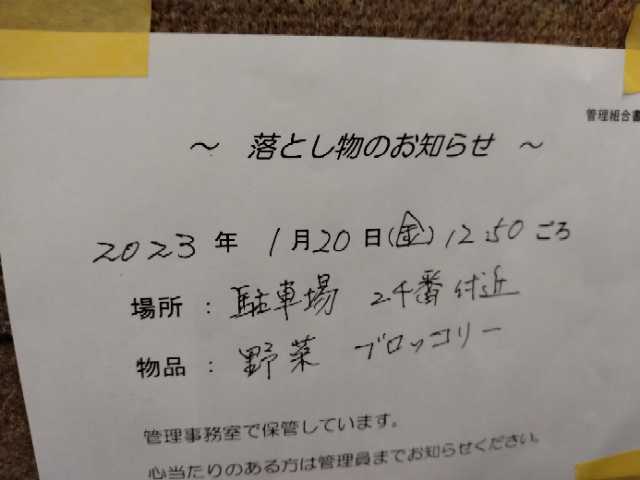 管理組合書
～ 落とし物のお知らせ ～
2023年 1月20日(金)12:50ごろ
場所 : 駐車場 24番付近
物品 : 野菜 ブロッコリー
管理事務室で保管しています。
心当たりのある方は管理員までお知らせください。